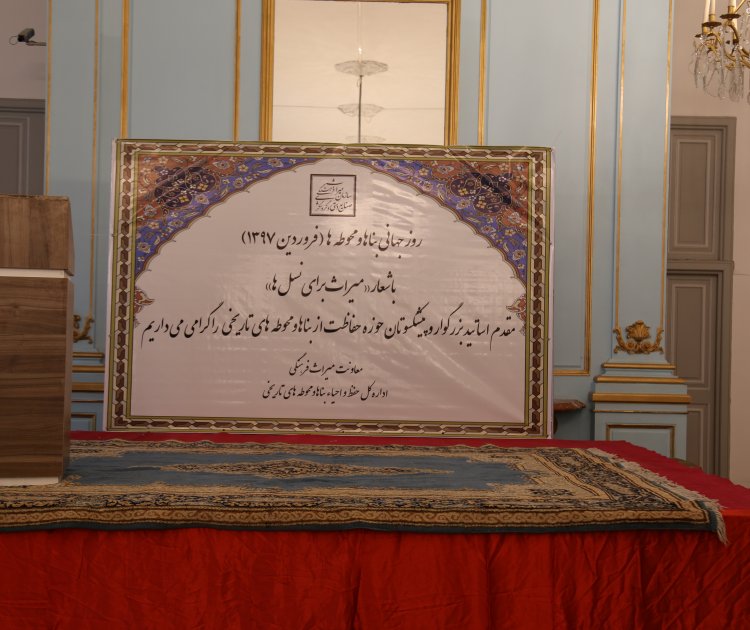 سازمان میراث فرهنگی
صنایع دستی و گردشگری
روز جهانی بناها و محوطه ها (فروردین ۱۳۹۷)
با شعار «میراث برای نسل ها»
مقدم اساتید بزرگوار و پیشکسوتان حوزه حفاظت از بناها و محوطه های تاریخی را گرامی می داریم
معاونت میراث فرهنگی
اداره کل حفظ و احیاء بناها و محوطه های تاریخی